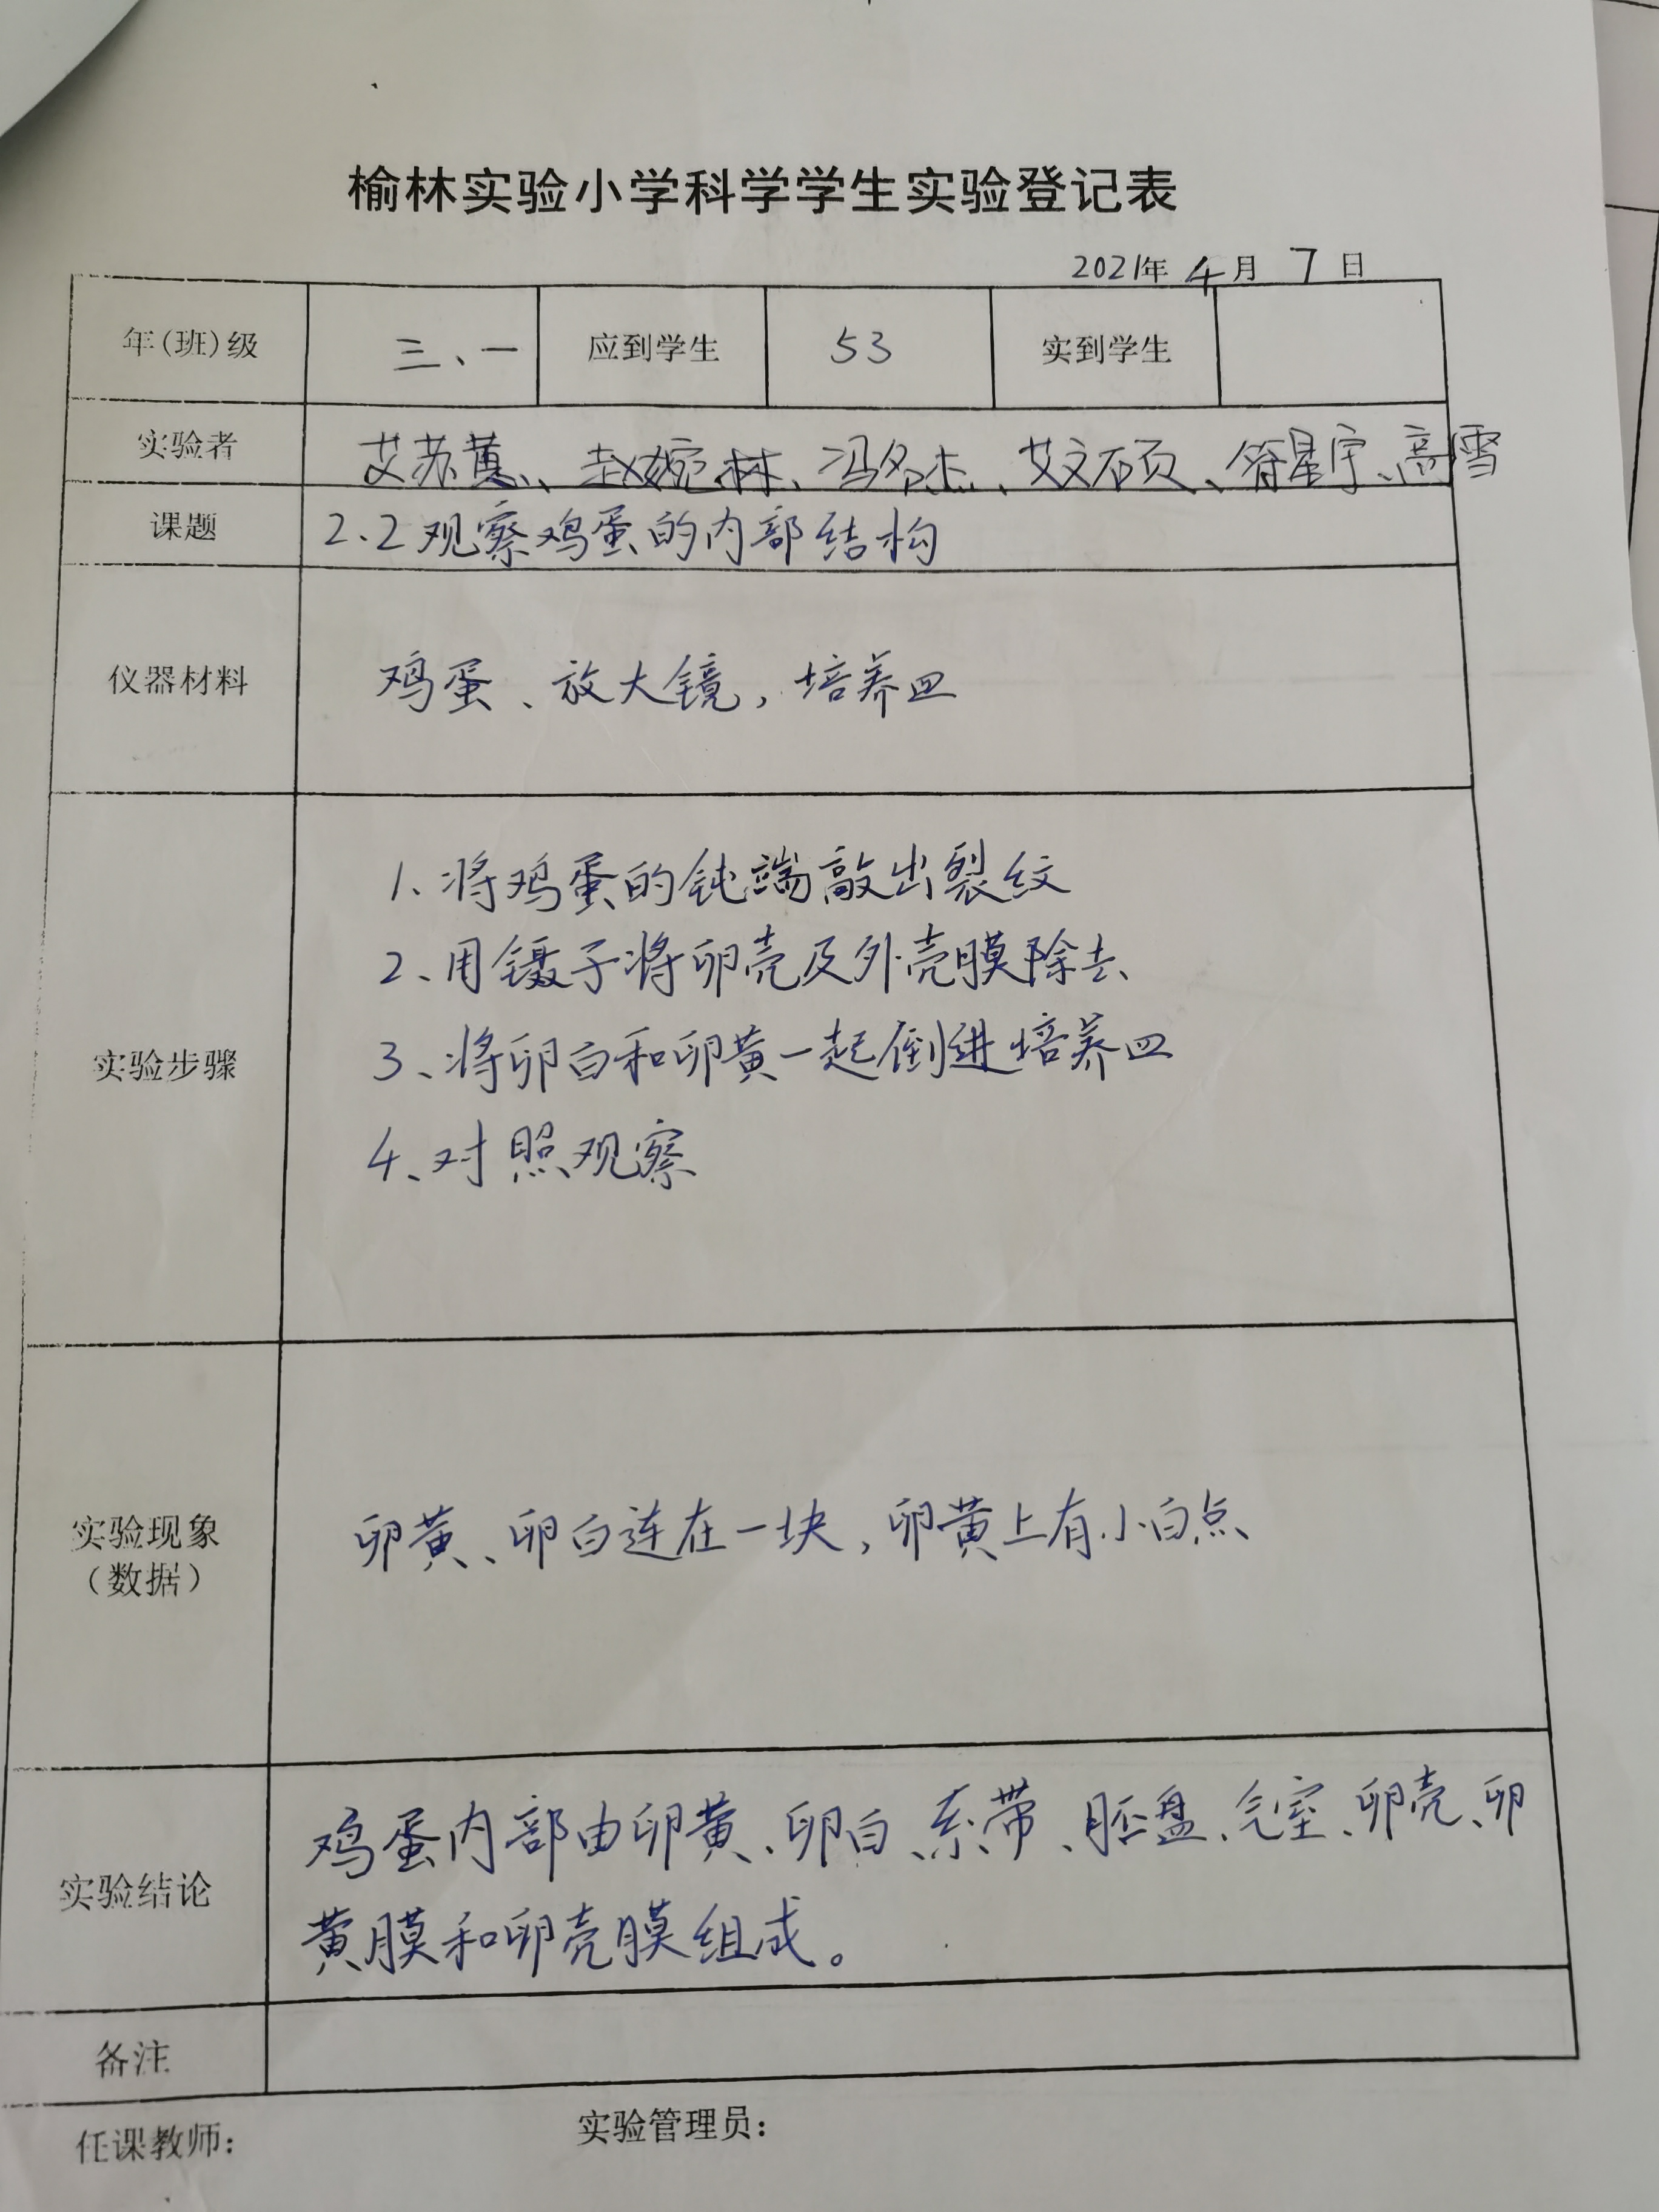 榆林实验小学科学学生实验登记表
2021年 4 月 7 日
年(班)级 三、一 应到学生 53 实到学生
实验者 艾苏蕙、赵婉林、冯名杰、艾文硕、符星宇、高雪
课题 2.2观察鸡蛋的内部结构
仪器材料 鸡蛋、放大镜，培养皿
实验步骤
1、将鸡蛋的钝端敲出裂纹
2、用镊子将卵壳及外壳膜除去
3、将卵白和卵黄一起倒进培养皿
4、对照观察
实验现象
（数据）
卵黄、卵白连在一块，卵黄上有小白点
实验结论
鸡蛋内部由卵黄、卵白、系带、胚盘、气室、卵壳、卵
黄膜和卵壳膜组成。
备注
任课教师： 实验管理员：